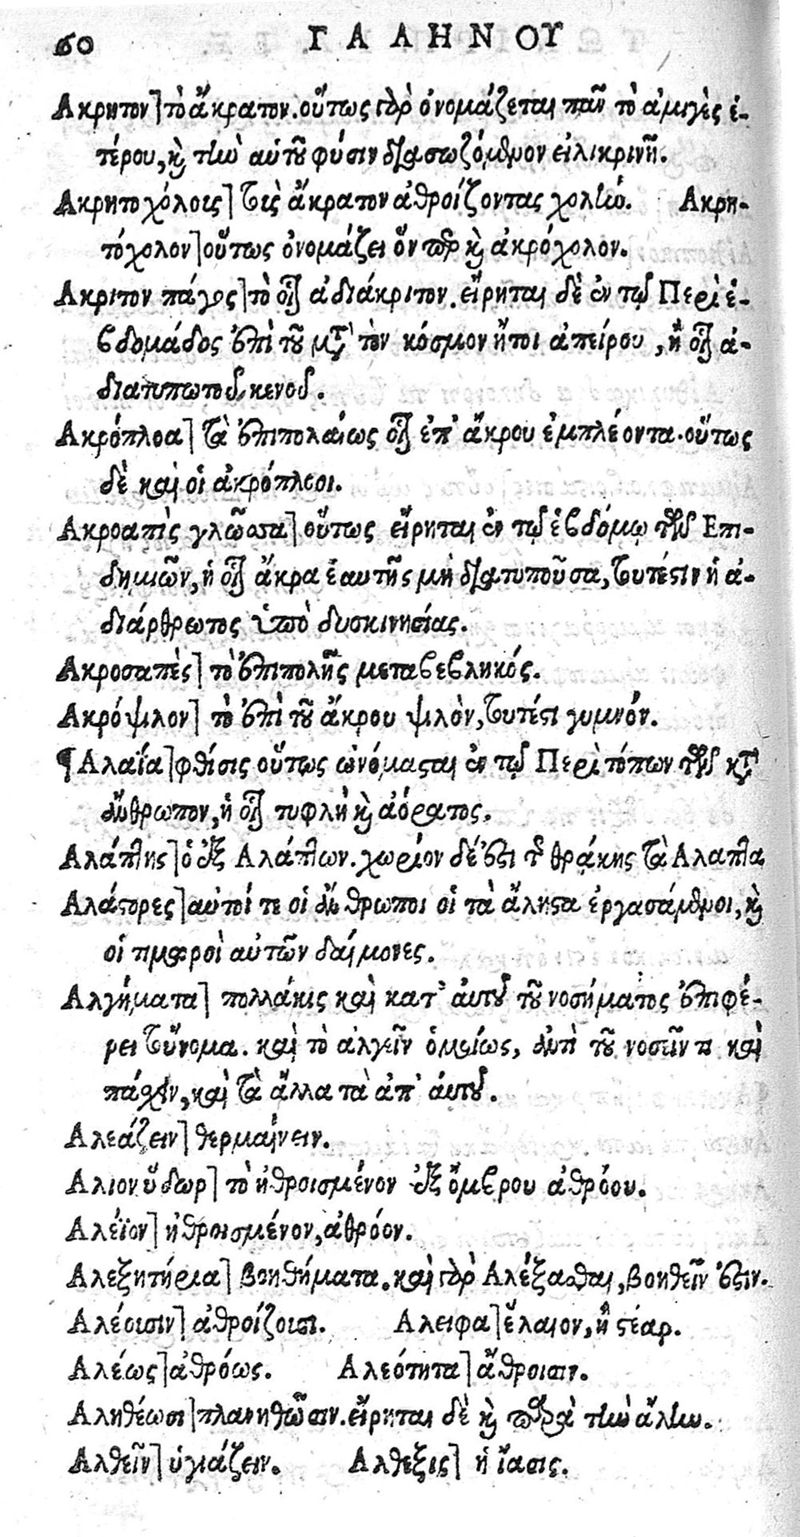 60 ΓΑΛΗΝΟΥ
Ακρητον] τὸ ἄκρατον. οὕτως γὰρ ὀνομάζεται πᾶν τὸ ἀμιγὲς ἑ-
τέρου, καὶ τὴν αὑτοῦ φύσιν διασωζόμενον εἰλικρινῆ.
Ακρητοχόλοις] τοῖς ἄκρατον ἀθροίζοντας χολήν. Ακρη-
τόχολον] οὕτως ὀνομάζει ὅνπερ καὶ ἀκρόχολον.
Ακριτον πάγος] τὸ οἷον ἀδιάκριτον. εἴρηται δὲ ἐν τῷ Περὶ ἑ-
βδομάδος ἐπὶ τοῦ μετὰ τὸν κόσμον ἤτοι ἀπείρου, ἢ οἷον ἀ-
διατυπώτου κενοῦ.
Ακρόπλοα] τὰ ἐπιπολαίως οἷον ἐπ' ἄκρου ἐμπλέοντα. οὕτως
δὲ καὶ οἱ ἀκρόπλεοι.
Ακροαπὶς γλῶσσα] οὕτως εἴρηται ἐν τῷ ἑβδόμῳ τῶν Επι-
δημιῶν, ἡ οἷον ἄκρα ἑαυτῆς μὴ διατυποῦσα, τουτέστιν ἡ ἀ-
διάρθρωτος ὑπὸ δυσκινησίας.
Ακροσαπὲς] τὸ ἐπιπολῆς μεταβεβληκός.
Ακρόψιλον] τὸ ἐπὶ τοῦ ἄκρου ψιλὸν, τουτέστι γυμνόν.
¶Αλαΐα] φθίσις οὕτως ὠνόμασται ἐν τῷ Περὶ τόπων τῶν κατ'
ἄνθρωπον, ἡ οἷον τυφλὴ καὶ ἀόρατος.
Αλάπτης] ὁ ἐξ Αλάπτων. χωρίον δέ ἐστι τῆς θράκης τὰ Αλαπτα
Αλάστορες] αὐτοί τε οἱ ἄνθρωποι οἱ τὰ ἄληστα ἐργασάμενοι, καὶ
οἱ τιμωροὶ αὐτῶν δαίμονες.
Αλγήματα] πολλάκις καὶ κατ' αὐτοῦ τοῦ νοσήματος ἐπιφέ-
ρει τοὔνομα. καὶ τὸ ἀλγεῖν ὁμοίως, ἀντὶ τοῦ νοσῶν τι καὶ
πάσχειν, καὶ τὰ ἄλλα τὰ ἀπ' αὐτοῦ.
Αλεάζειν] θερμαίνειν.
Αλιον ὕδωρ] τὸ ἠθροισμένον ἐξ ὄμβρου ἀθρόου.
Αλέϊον] ἠθροισμένον, ἀθρόον.
Αλεξητήρια] βοηθήματα. καὶ γὰρ Αλέξασθαι, βοηθεῖν ἐστιν.
Αλέοισιν] ἀθροίζουσι. Αλειφα] ἔλαιον, ἢ στέαρ.
Αλέως] ἀθρόως. Αλεότητα] ἄθροισιν.
Αληθέωσι] πλανηθῶσιν. εἴρηται δὲ καὶ παρὰ τὴν ἄλην.
Αλθεῖν] ὑγιάζειν. Αλθεξις] ἡ ἴασις.